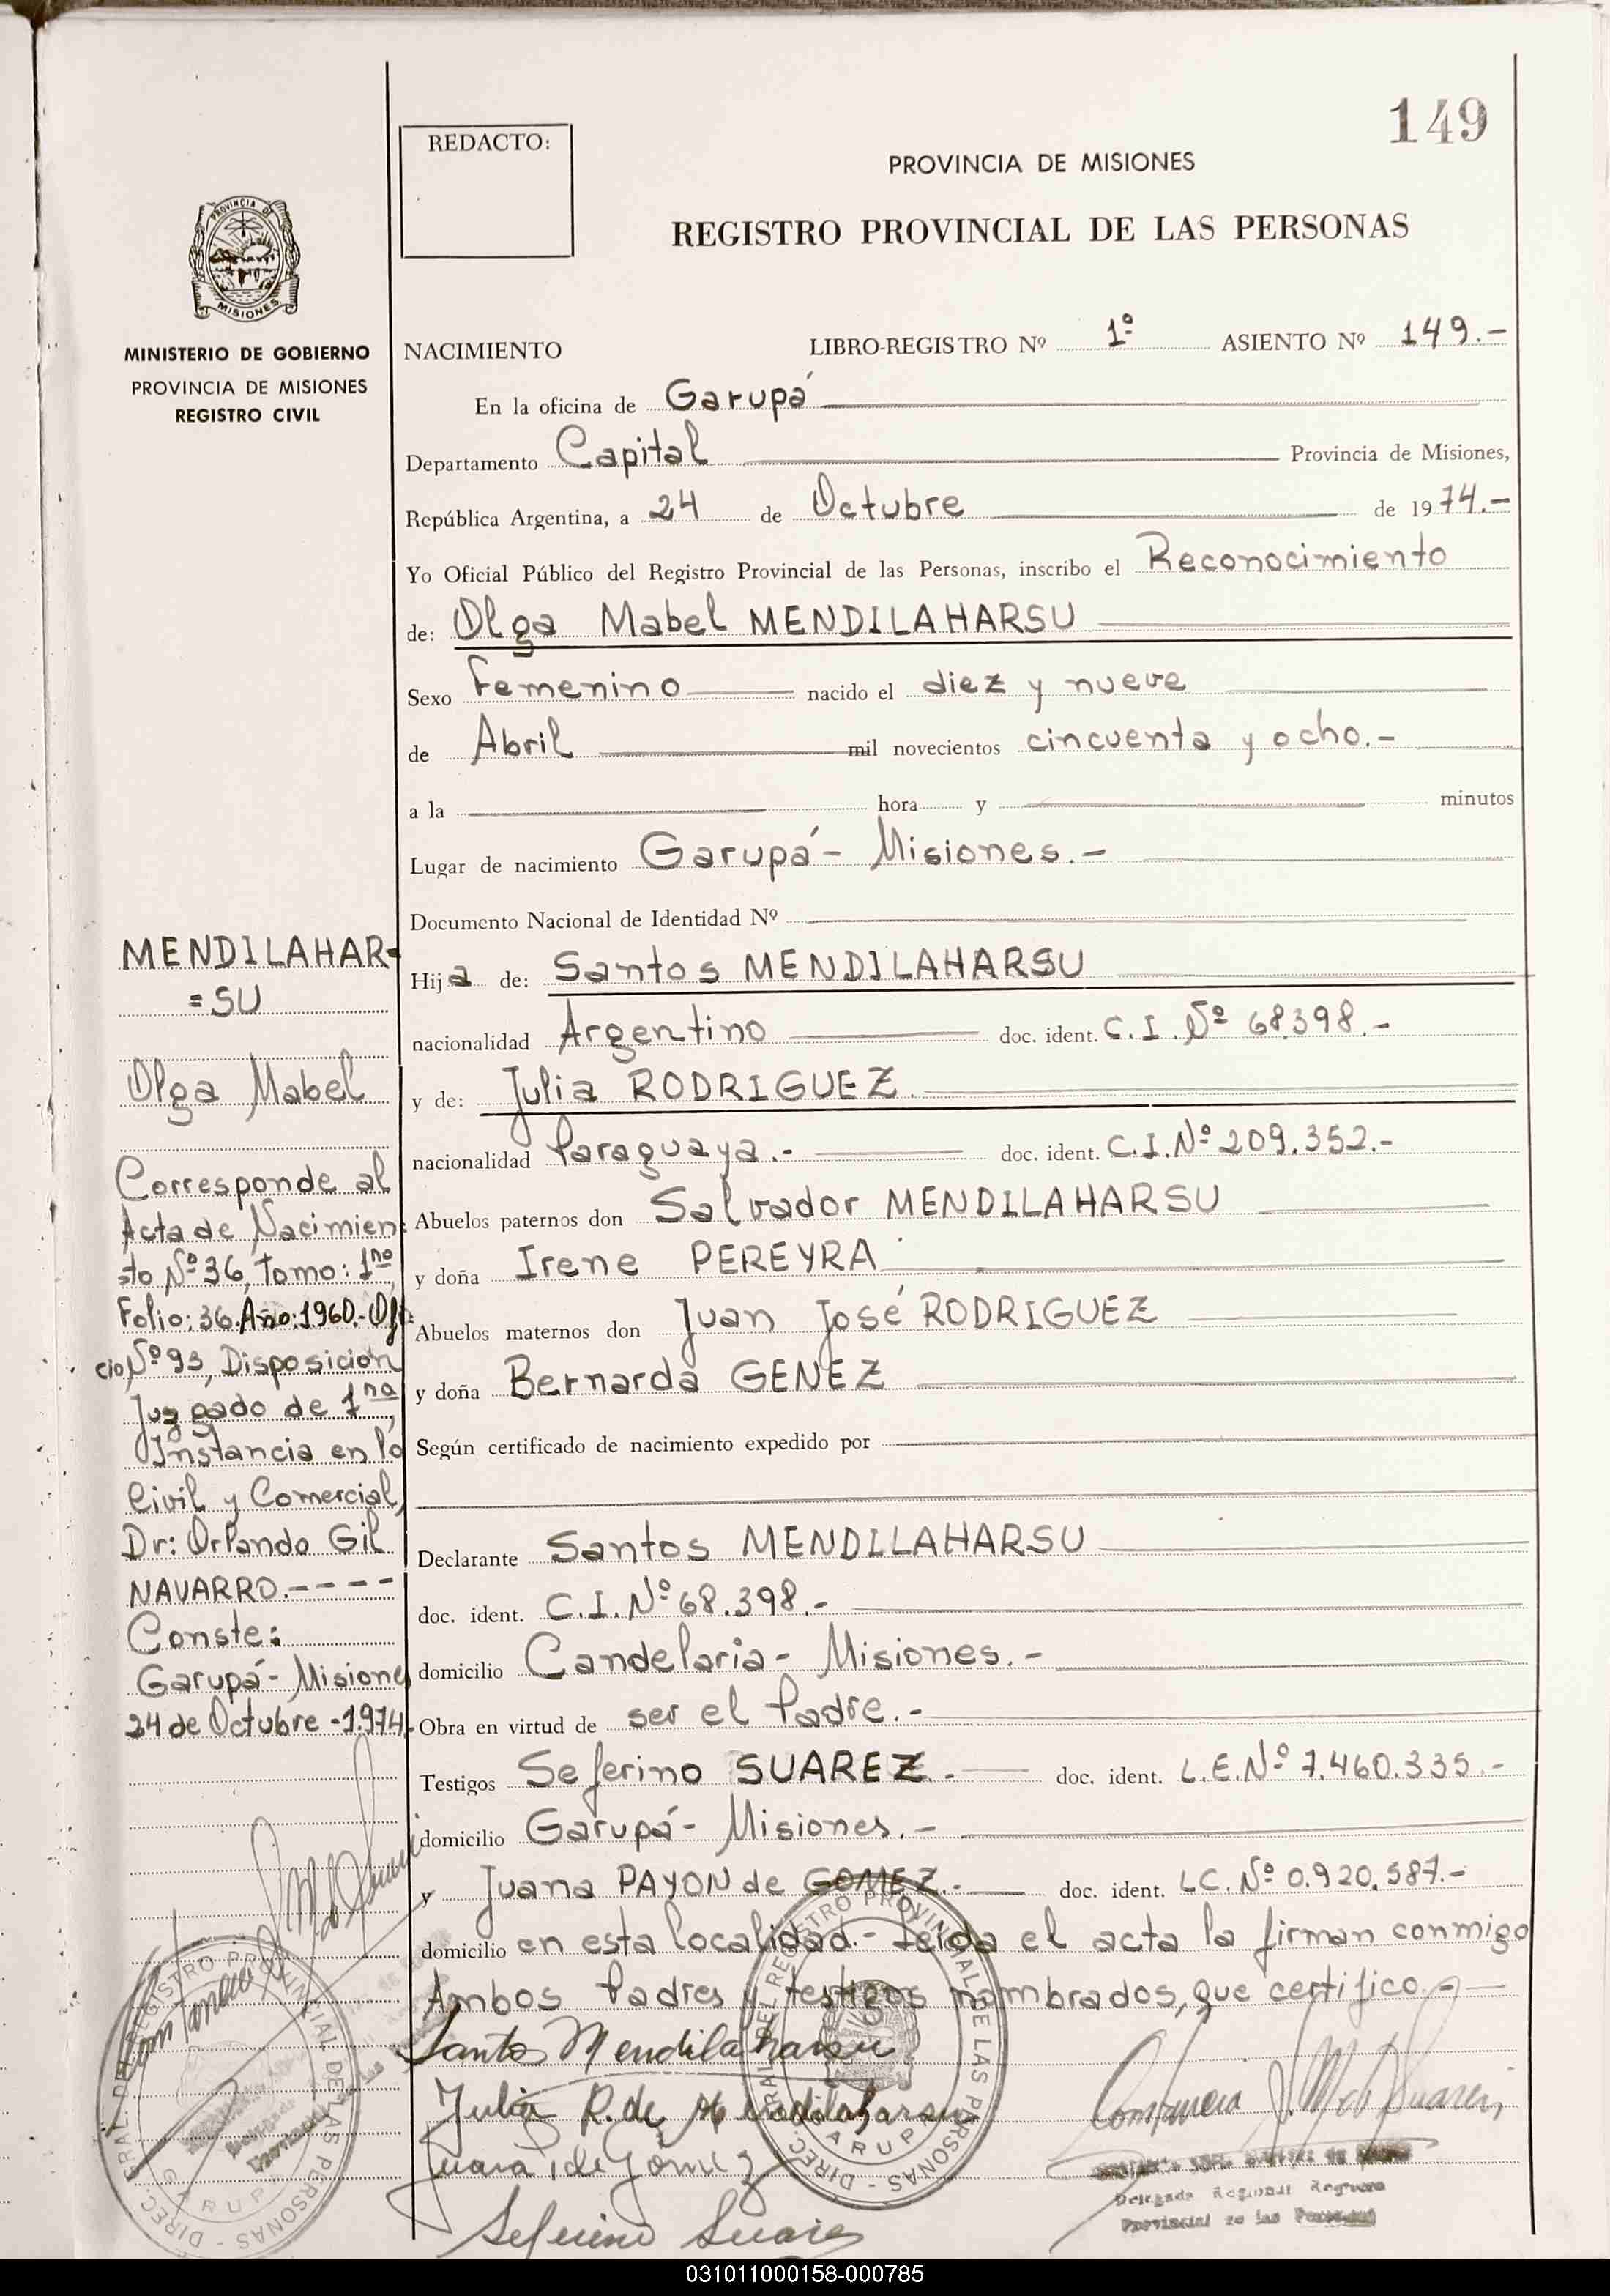 149
REDACTO:
PROVINCIA DE MISIONES
REGISTRO PROVINCIAL DE LAS PERSONAS
PROVINCIA DE
MISIONES
MINISTERIO DE GOBIERNO
PROVINCIA DE MISIONES
REGISTRO CIVIL
NACIMIENTO LIBRO-REGISTRO Nº 1º ASIENTO Nº 149.-
En la oficina de Garupá
Departamento Capital Provincia de Misiones,
República Argentina, a 24 de Octubre de 1974.-
Yo Oficial Público del Registro Provincial de las Personas, inscribo el Reconocimiento
de: Olga Mabel MENDILAHARSU
Sexo Femenino nacido el diez y nueve
de Abril mil novecientos cincuenta y ocho.-
a la hora y minutos
Lugar de nacimiento Garupá - Misiones.-
Documento Nacional de Identidad Nº
Hija de: Santos MENDILAHARSU
nacionalidad Argentino doc. ident. C.I. Nº 68.398.-
y de: Julia RODRIGUEZ
nacionalidad Paraguaya.- doc. ident. C.I.Nº 209.352.-
Abuelos paternos don Salvador MENDILAHARSU
y doña Irene PEREYRA
Abuelos maternos don Juan José RODRIGUEZ
y doña Bernarda GENEZ
Según certificado de nacimiento expedido por
Declarante Santos MENDILAHARSU
doc. ident. C.I. Nº 68.398.-
domicilio Candelaria - Misiones.-
Obra en virtud de ser el Padre.-
Testigos Seferino SUAREZ.- doc. ident. L.E.Nº 7.460.335.-
domicilio Garupá - Misiones.-
y Juana PAYON de GOMEZ.- doc. ident. LC. Nº 0.920.587.-
domicilio en esta localidad.- Leida el acta la firman conmigo
Ambos Padres y testigos nombrados, que certifico.-
Santos Mendilaharsu
Julia R. de Mendilaharsu
Juana P de Gómez
Seferino Suarez
Delegada Regional Registro
Provincial de las Personas
DIREC. GRAL. DEL REGISTRO PROVINCIAL DE LAS PERSONAS - GARUPA
MENDILAHAR=
=SU
Olga Mabel
Corresponde al
Acta de Nacimien=
to Nº 36, Tomo: 1no
Folio: 36. Año: 1960.- Ofi=
cio Nº 93, Disposición
Juzgado de 1na,
Instancia en lo
Civil y Comercial,
Dr: Orlando Gil
NAVARRO.----
Conste:
Garupá - Misiones
24 de Octubre - 1.974.-
DIREC. GRAL. DEL REGISTRO PROVINCIAL DE LAS PERSONAS - GARUPA
031011000158-000785